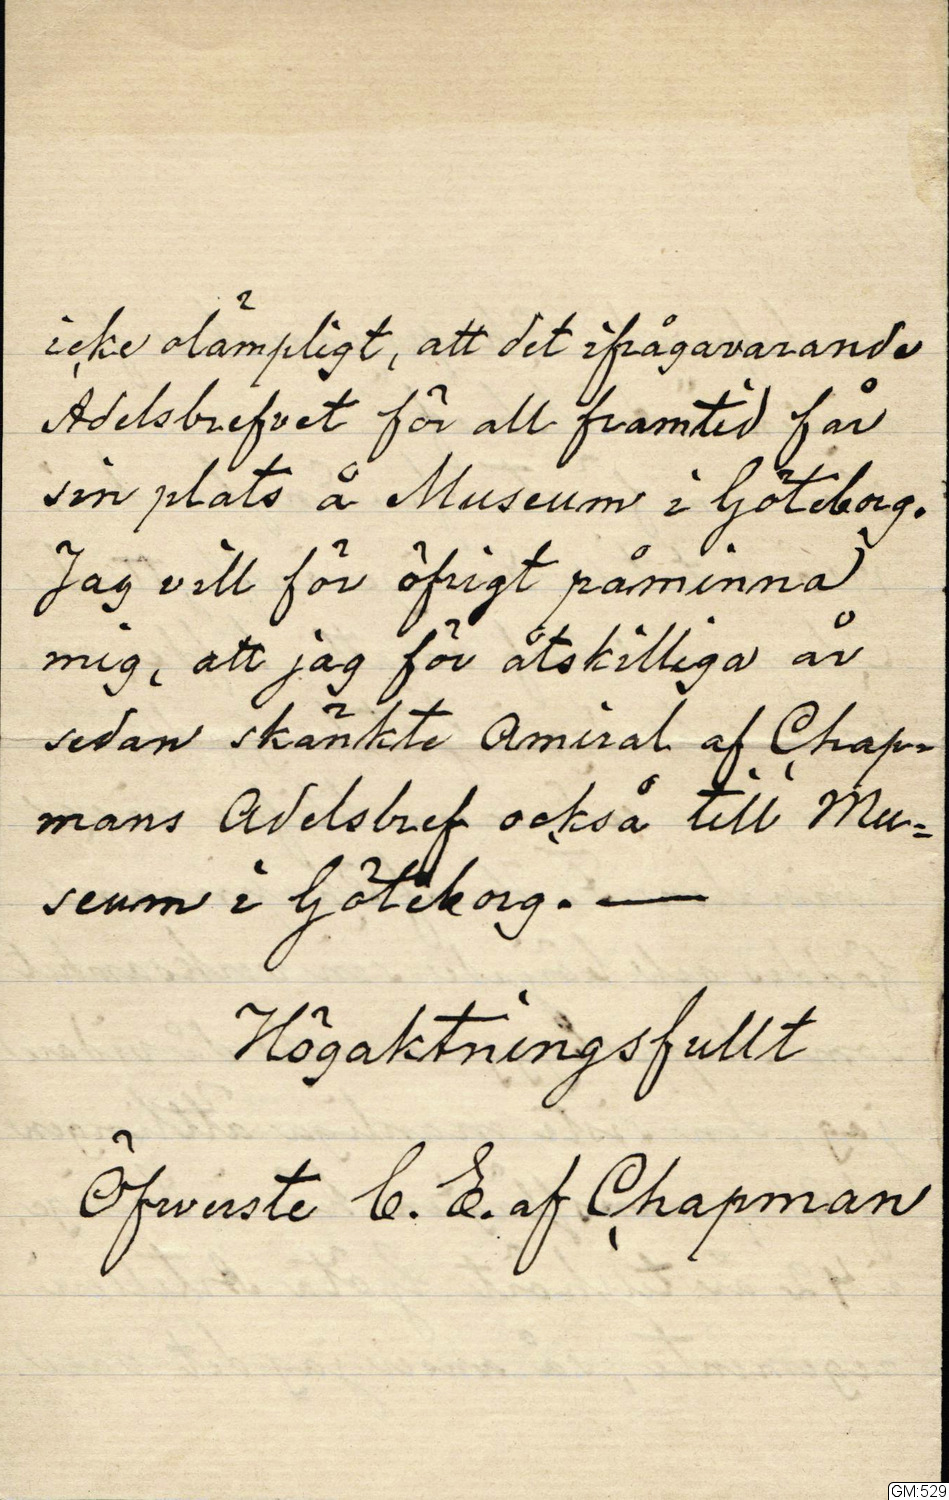 icke olämpligt, att det ifrågavarande
Adelsbrefvet för all framtid får
sin plats å Museum i Göteborg.
Jag vill för öfrigt påminna
mig, att jag för åtskilliga år
sedan skänkte Amiral af Chap-
mans Adelsbref också till Mu=
seum i Göteborg. —
Högaktningsfullt
Öfverste C. E. af Chapman
GM:529